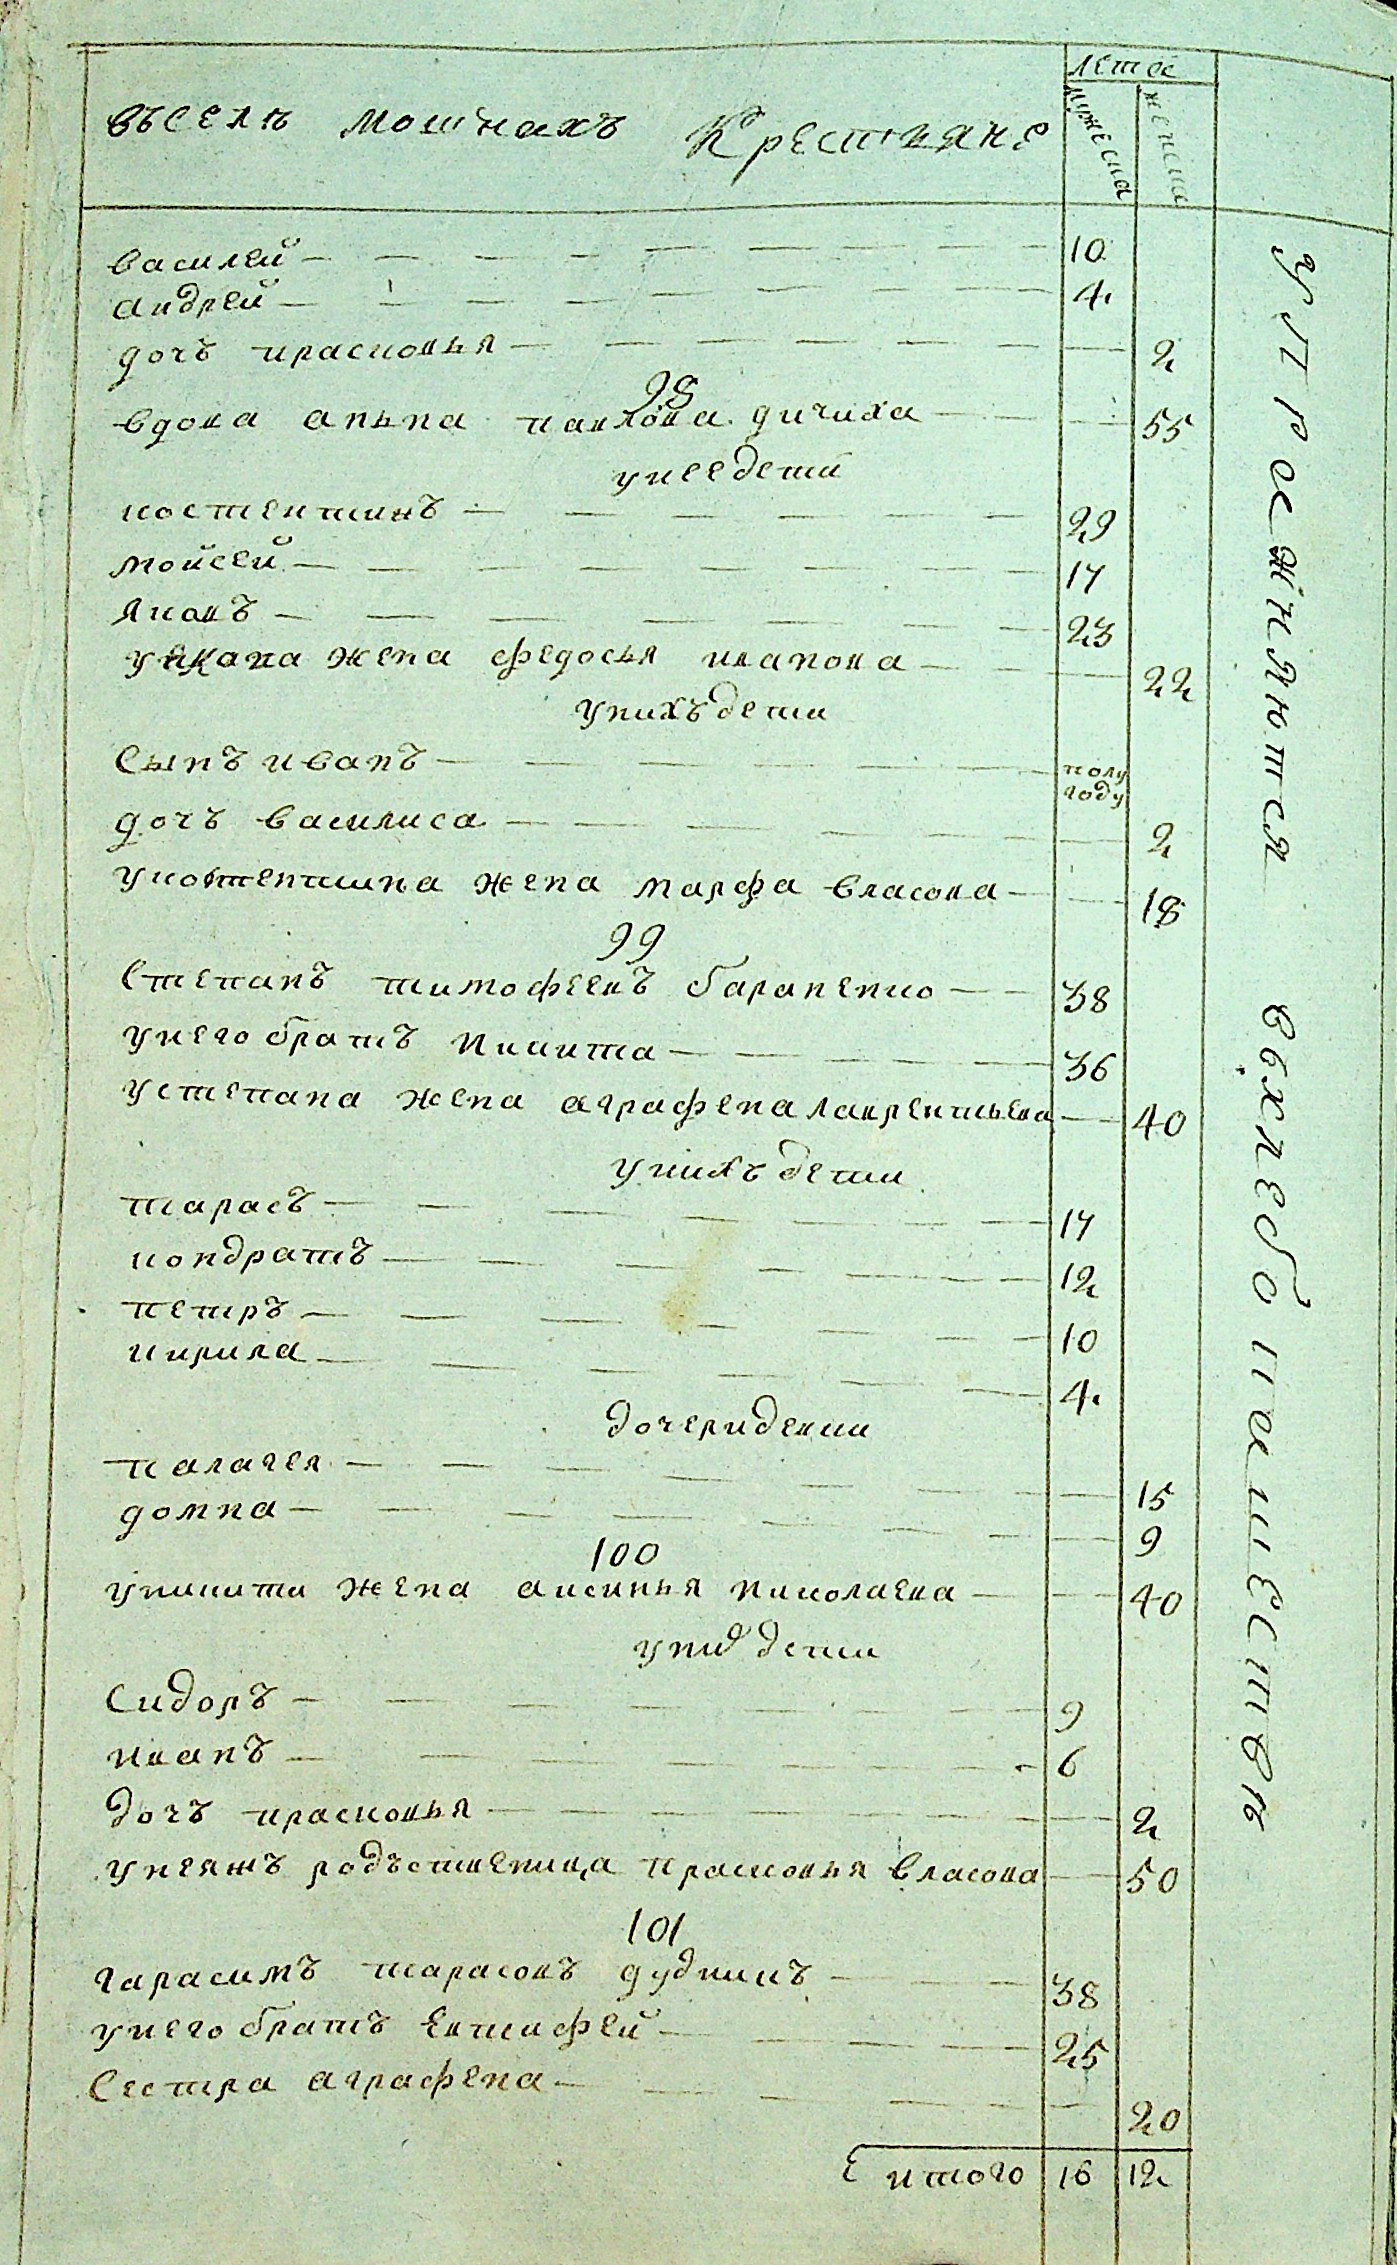 Въселѣ Мошнахъ Крестьяне
летос
мужеска
женска
Василей 10
Андрей 4
дочъ прасковья 2
98
вдова анъна павлова дичиха 55
унее дети
костентинъ 29
мойсей 17
яковъ 23
уякова жена федосья иванова 22
унихъ дети
Сынъ иванъ полу году
дочъ василиса 2
укостентина жена марфа власова 18
99
Степанъ тимофеевъ бараненко 38
унего братъ никита 36
устепана жена аграфена лаврентьева 40
унихъ дети
тарасъ 17
кондратъ 12
петръ 10
кирила 4
дочери девки
палагея 15
домна 9
100
уникити жена аксинья николаева 40
уних дети
Сидоръ 9
иванъ 6
дочъ прасковья 2
унеяжъ родъственица прасковья власова 50
101
гарасимъ тарасовъ дудникъ 38
унего братъ Евтифей 25
Сестра аграфена 20
итого 16 12
упрожняются
вхлебопашестве